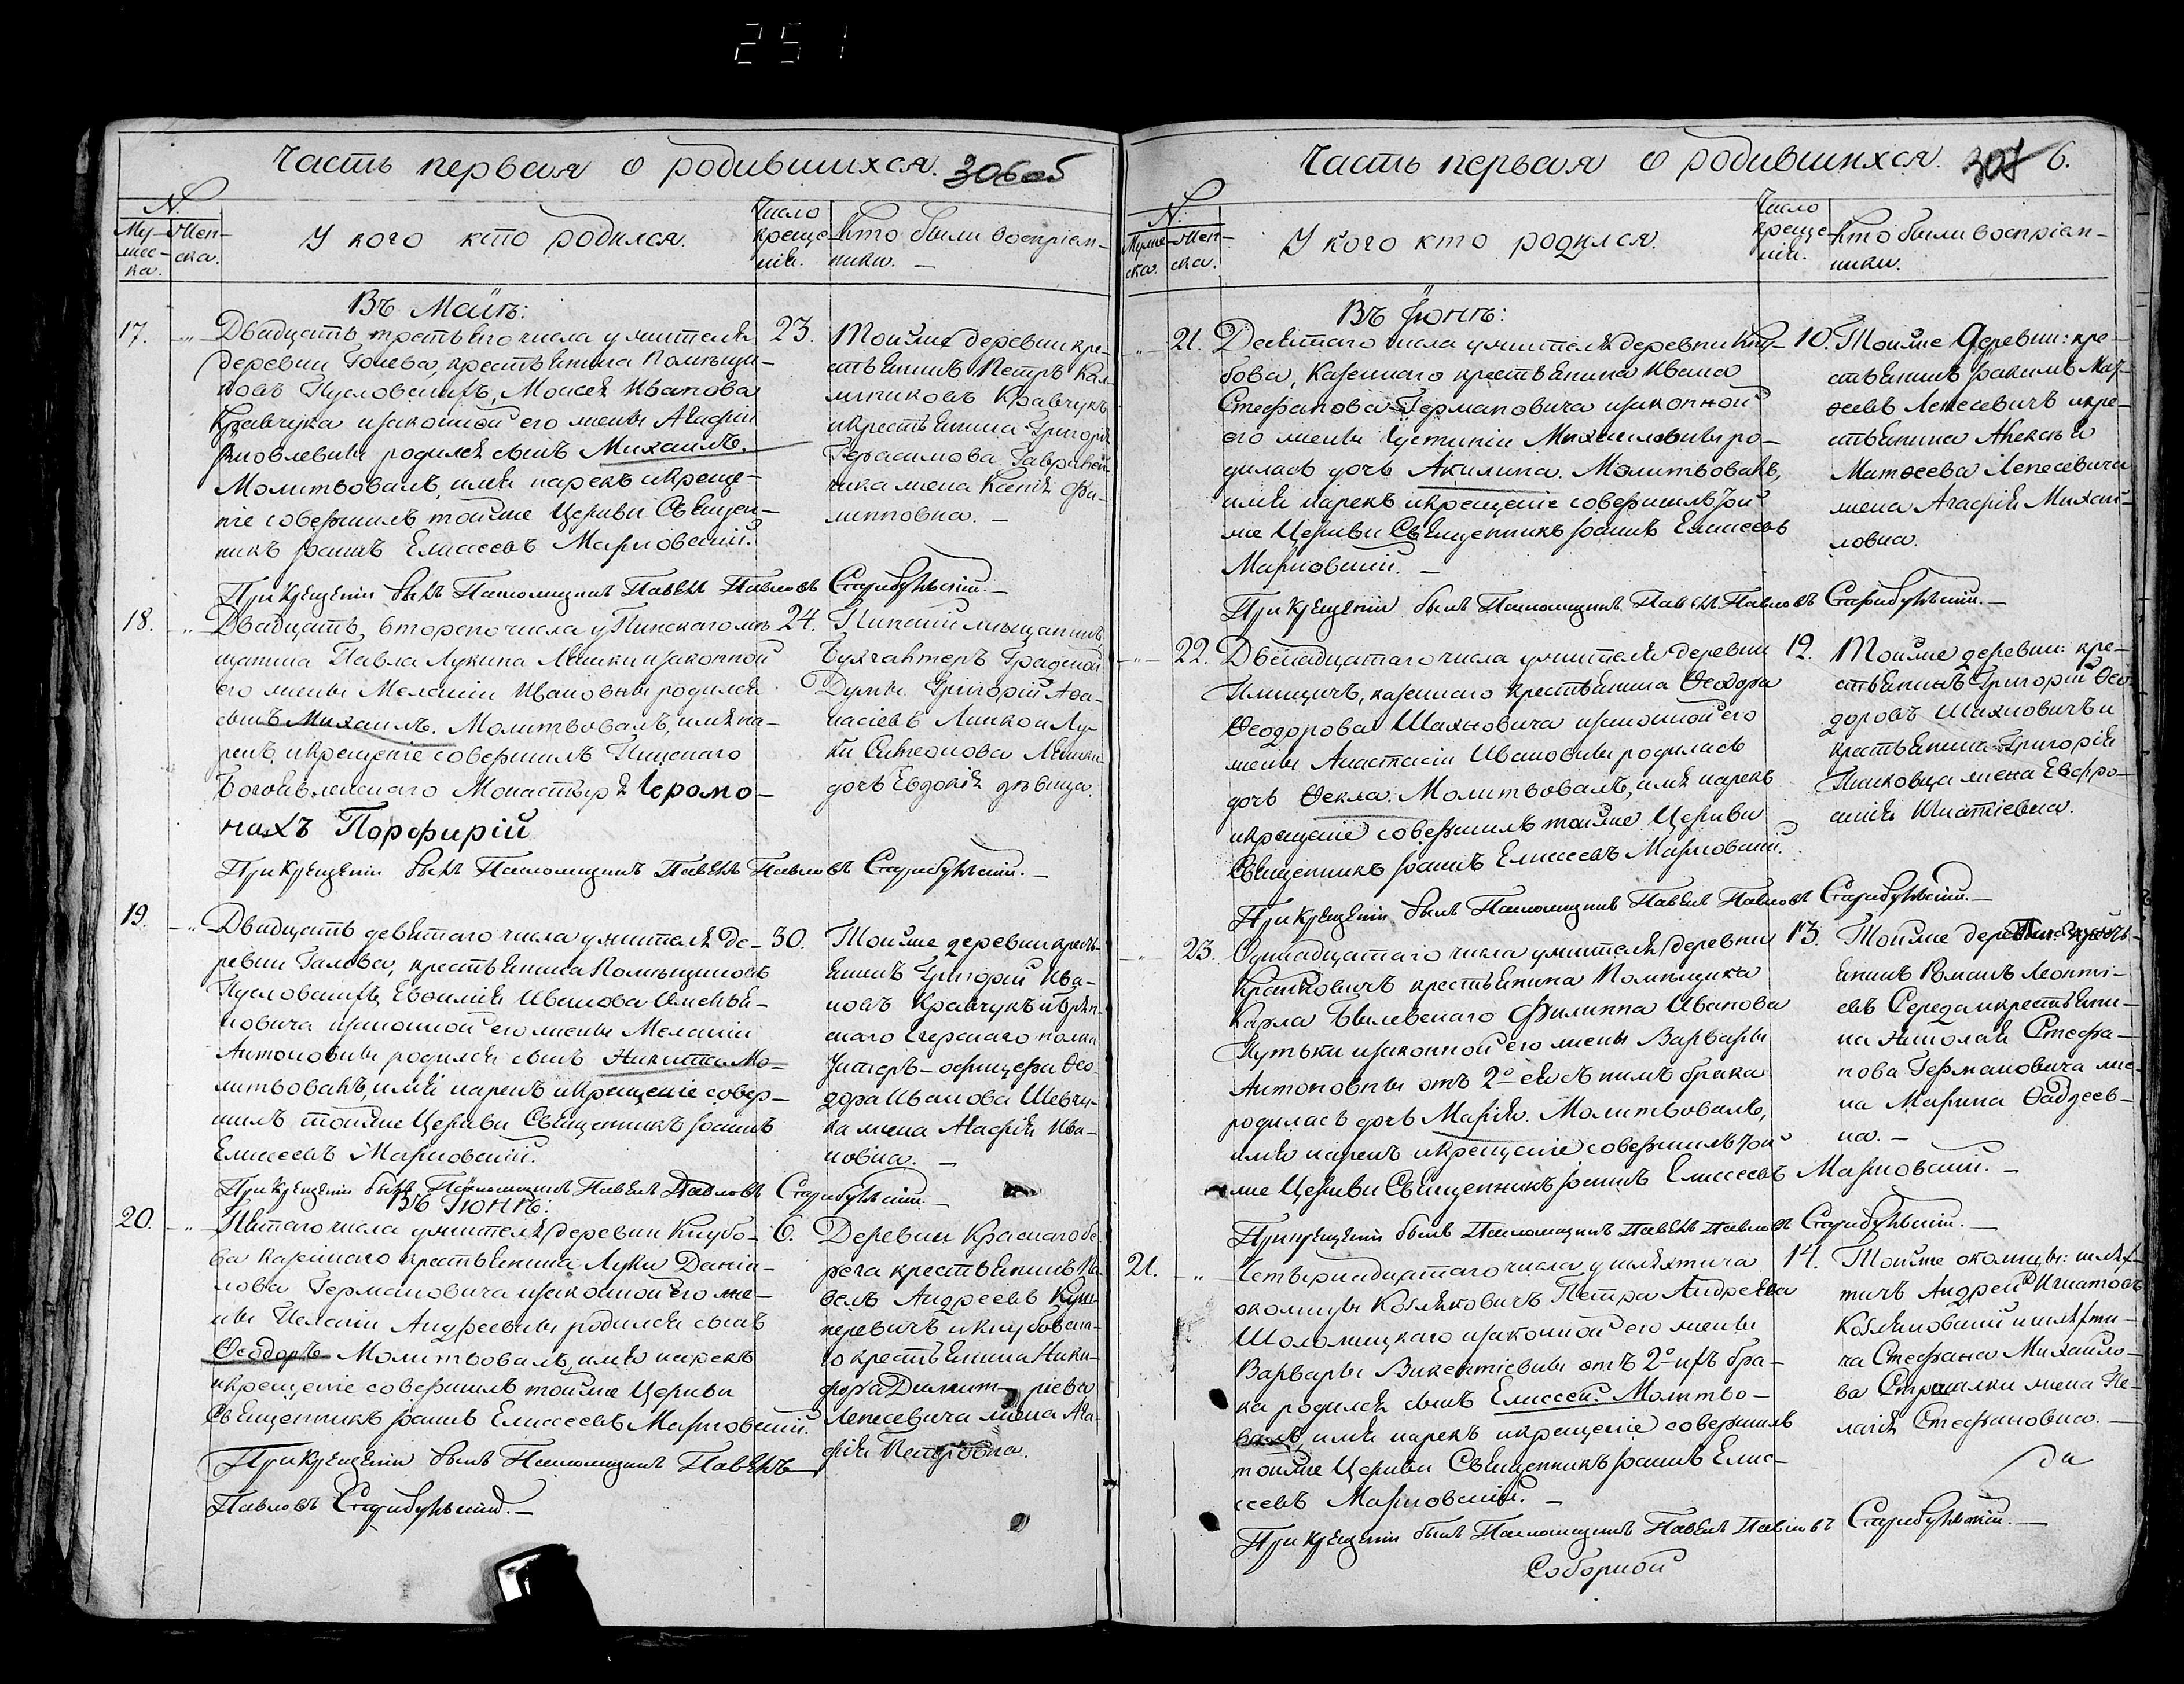 251
Часть первая о родившихся. 306об
N.
Му-
жес-
ка.
Жен-
ска.
У кого кто родился.
Число
креще-
нія.
Кто были воспріем-
ники. —
Въ Маіѣ:
17. „ Двадцать третьяго числа у жителя
деревни Галева, крестьянина помѣщи-
ковъ Пусловскихъ, Моисея Иванова
Кравчука и законной его жены Агафіи
Яковлевны родился сынъ Михаилъ.
Молитвовалъ, имя нарекъ и креще-
ніе совершилъ тойже Церкви Священ-
никъ Іоаннъ Елисеевъ Марковскій.
23. Тойже деревни кре-
стьянинъ Петръ
Кравчукъ
и крестьянина Григорія
Герасимова
жена Ксенія Фи-
липповна. —
При крещеніи былъ Паломщикъ Павелъ Павловъ
18. „ Двадцать втораго числа у Пинскаго мѣ-
щанина Павла Лукина Ляшки и законной
его жены Меланіи Ивановны родился
сынъ Михаилъ. Молитвовалъ, имя на-
рекъ и крещеніе совершилъ Пинскаго
Богоявленскаго Монастыря Іеромо-
нахъ Порфирій
24. Пинскій мѣщанинъ
Бухгалтеръ Градской
Думы Григорій Афа-
насіевъ Липко и Лу-
ки Симеонова Ляшки
дочь Евдокія дѣвица.
При крещеніи былъ Паломщикъ Павелъ Павловъ
19. „ Двадцать девятаго числа у жителя де-
ревни Галева, крестьянина помѣщиковъ
Пусловскихъ, Евфимія Иванова
новича и законной его жены Меланіи
Антоновны родился сынъ Никита. Мо-
литвовалъ, имя нарекъ и крещеніе совер-
шилъ тойже Церкви Священникъ Іоаннъ
Елисеевъ Марковскій.
30. Тойже деревни кресть-
янинъ Григорій Ива-
новъ Кравчукъ и
Егерскаго полка
Унтеръ-офицера Ѳео-
дора Иванова Шевчу-
ка жена Агафія Ива-
новна. —
При крещеніи былъ Паломщикъ Павелъ Павловъ
Въ Іюнѣ:
20. „ Пятаго числа у жителя деревни Клубо-
ва казеннаго крестьянина Луки Даніи-
лова Германовича и законной его же-
ны Андреевны родился сынъ
Ѳеодоръ Молитвовалъ, имя нарекъ
и крещеніе совершилъ тойже Церкви
Священникъ Іоаннъ Елисеевъ Марковскій.
6. Деревни Краснаго бе-
рега крестьянинъ Па-
велъ Андреевъ
и Клубовска-
го крестьянина Ники-
фора Димит-ріева
Лепесевича жена Ага-
фія Петровна.
При крещеніи былъ Паломщикъ Павелъ
Павловъ
Часть первая о родившихся. 307 6.
N.
Муже-
ска.
Жен-
ска.
У кого кто родился.
Число
креще-
нія.
Кто были воспріем-
ники.
Въ Іюнѣ:
„ 21. Десятаго числа у жителя деревни Клу-
бова, Казеннаго крестьянина Ивана
Стефанова Германовича и законной
его жены Іустиніи Михаиловны ро-
дилась дочь Акилина. Молитвовалъ,
имя нарекъ и крещеніе совершилъ той
же Церкви Священникъ Іоаннъ Елисеевъ
Марковскій. —
10. Тойже деревни: кре-
стьянинъ Іоакимъ Мат-
ѳеевъ Лепесевичъ и кре-
стьянина Алексѣя
Матѳеева Лепесевича
жена Агафія Михаи-
ловна.
При крещеніи былъ Паломщикъ Павелъ Павловъ
„ 22. Двенадцатаго числа у жителя деревни
казеннаго крестьянина Ѳеодора
Ѳеодорова Шахновича и законной его
жены Анастасіи Ивановны родилась
дочь Ѳекла. Молитвовалъ, имя нарекъ
и крещеніе совершилъ тойже Церкви
Священникъ Іоаннъ Елисеевъ Марковскій.
12. Тойже деревни: кре-
стьянинъ Григорій Ѳео-
доровъ Шахновичъ и
крестьянина Григорія
жена Евфро-
синія Игнатіевна.
При крещеніи былъ Паломщикъ Павелъ Павловъ
„ 23. Одинадцатаго числа у жителя деревни
крестьянина Помѣщика
Карла Филиппа Иванова
Кутьки и законной его жены Варвары
Антоновны отъ 2го ея съ нимъ брака
родилась дочь Марія. Молитвовалъ,
имя нарекъ и крещеніе совершилъ той
же Церкви Священникъ Іоаннъ Елисеевъ Марковскій. —
13. Тойже деревни: кресть-
янинъ Романъ Леонті-
евъ Середа и крестьяни-
на Николая Стефа-
нова Германовича же-
на Марина Ѳаддеев-
на. —
При крещеніи былъ Паломщикъ Павелъ Павловъ
21. „ Четырнадцатаго числа у шляхтича
околицы Коблаковичъ Петра Андреева
Шоломицкаго и законной его жены
Варвары Викентіевны отъ 2го ихъ бра-
ка родился сынъ Елиссей. Молитво-
валъ, имя нарекъ и крещеніе совершилъ
тойже Церкви Священникъ Іоаннъ Ели-
сеевъ Марковскій. —
14. Тойже околицы: шлях-
тичъ Андрей Игнатовъ
и шляхти-
ча Стефана Михаило-
ва жена Пе-
лагія Стефановна. —
При крещеніи былъ Паломщикъ Павелъ Павловъ
Соборной